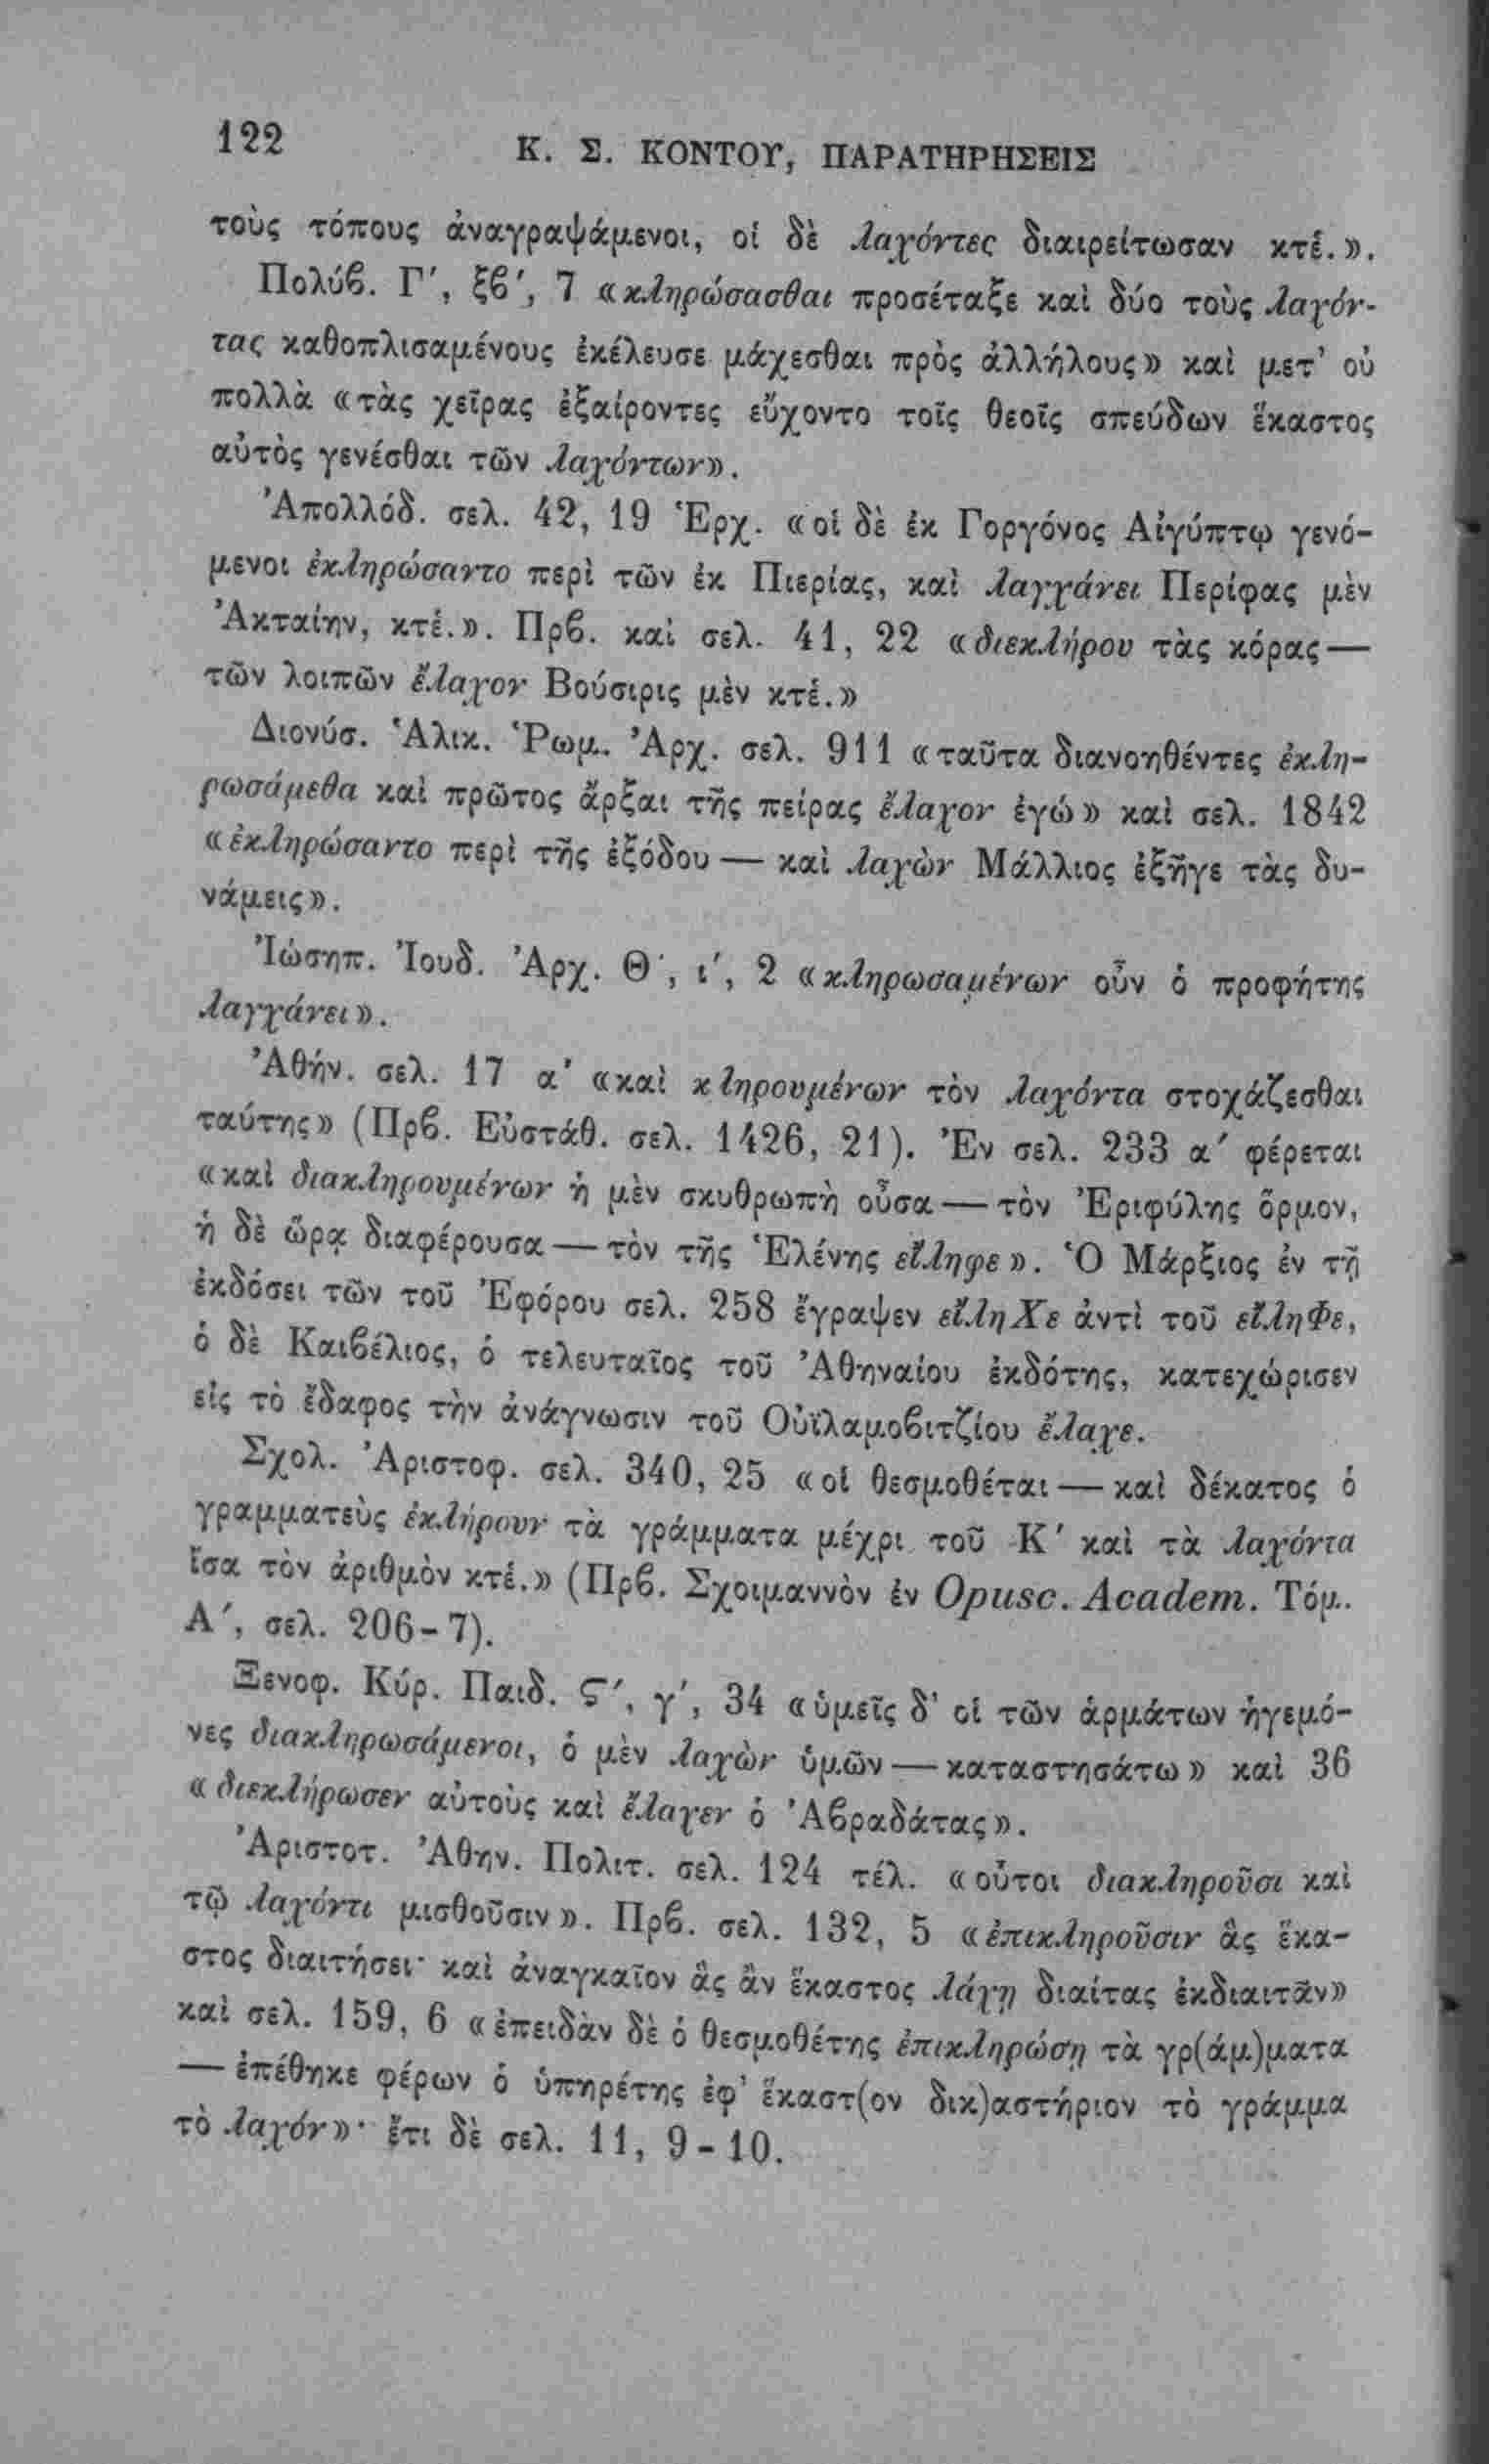 122
Κ. Σ. ΚΟΝΤΟΥ, ΠΑΡΑΤΗΡΗΣΕΙΣ
τοὺς τόπους ἀναγραψάμενοι, οἱ δὲ λαχόντες διαιρείτωσαν κτἑ.».
Πολύβ. Γ′, ξβ′, 7 «κληρώσασθαι προσέταξε καὶ δύο τοὺς λαχόν-
τας καθοπλισαμένους ἐκέλευσε μάχεσθαι πρὸς ἀλλήλους» καὶ μετ' οὐ
πολλὰ «τὰς χεῖρας ἐξαίροντες εὔχοντο τοῖς θεοῖς σπεύδων ἕκαστος
αὐτὸς γενέσθαι τῶν λαχόντων».
Ἀπολλόδ. σελ. 42, 19 Ἑρχ. «οἱ δὲ ἐκ Γοργόνος Αἰγύπτῳ γενό-
μενοι ἐκληρώσαντο περὶ τῶν ἐκ Πιερίας, καὶ λαγχάνει Περίφας μὲν
Ἀκταίην, κτἑ.». Πρβ. καὶ σελ. 41, 22 «διεκλήρου τὰς κόρας —
τῶν λοιπῶν ἔλαχον Βούσιρις μὲν κτἑ.»
Διονύσ. Ἁλικ. Ῥωμ. Ἀρχ. σελ. 911 «ταῦτα διανοηθέντες ἐκλη-
ρωσάμεθα καὶ πρῶτος ἄρξαι τῆς πείρας ἔλαχον ἐγώ» καὶ σελ. 1842
«ἐκληρώσαντο περὶ τῆς ἐξόδου — καὶ λαχὼν Μάλλιος ἐξῆγε τὰς δυ-
νάμεις».
Ἰώσηπ. Ἰουδ. Ἀρχ. Θ′, ι′, 2 «κληρωσαμένων οὖν ὁ προφήτης
λαγχάνει».
Ἀθήν. σελ. 17 α′ «καὶ κληρουμένων τὸν λαχόντα στοχάζεσθαι
ταύτης» (Πρβ. Εὐστάθ. σελ. 1426, 21). Ἐν σελ. 233 α′ φέρεται
«καὶ διακληρουμένων ἡ μὲν σκυθρωπὴ οὖσα — τὸν Ἐριφύλης ὅρμον,
ἡ δὲ ὥρᾳ διαφέρουσα — τὸν τῆς Ἑλένης εἴληφε». Ὁ Μάρξιος ἐν τῇ
ἐκδόσει τῶν τοῦ Ἐφόρου σελ. 258 ἔγραψεν εἴληΧε ἀντὶ τοῦ εἴληΦε,
ὁ δὲ Καιβέλιος, ὁ τελευταῖος τοῦ Ἀθηναίου ἐκδότης, κατεχώρισεν
εἰς τὸ ἔδαφος τὴν ἀνάγνωσιν τοῦ Οὐϊλαμοβιτζίου ἔλαχε.
Σχολ. Ἀριστοφ. σελ. 340, 25 «οἱ θεσμοθέται — καὶ δέκατος ὁ
γραμματεὺς ἐκλήρουν τὰ γράμματα μέχρι τοῦ Κ′ καὶ τὰ λαχόντα
ἴσα τὸν ἀριθμὸν κτἑ.» (Πρβ. Σχοιμαννὸν ἐν Opusc. Academ. Τόμ.
Α′, σελ. 206-7).
Ξενοφ. Κύρ. Παιδ. Ϛ′, γ′, 34 «ὑμεῖς δ' οἱ τῶν ἁρμάτων ἡγεμό-
νες διακληρωσάμενοι, ὁ μὲν λαχὼν ὑμῶν — καταστησάτω» καὶ 36
«διεκλήρωσεν αὐτοὺς καὶ ἔλαχεν ὁ Ἀβραδάτας».
Ἀριστοτ. Ἀθην. Πολιτ. σελ. 124 τέλ. «οὗτοι διακληροῦσι καὶ
τῷ λαχόντι μισθοῦσιν». Πρβ. σελ. 132, 5 «ἐπικληροῦσιν ἃς ἕκα-
στος διαιτήσει· καὶ ἀναγκαῖον ἃς ἂν ἕκαστος λάχῃ διαίτας ἐκδιαιτᾶν»
καὶ σελ. 159, 6 «ἐπειδὰν δὲ ὁ θεσμοθέτης ἐπικληρώσῃ τὰ γρ(άμ)ματα
— ἐπέθηκε φέρων ὁ ὑπηρέτης ἐφ' ἕκαστ(ον δικ)αστήριον τὸ γράμμα
τὸ λαχόν»· ἔτι δὲ σελ. 11, 9-10.